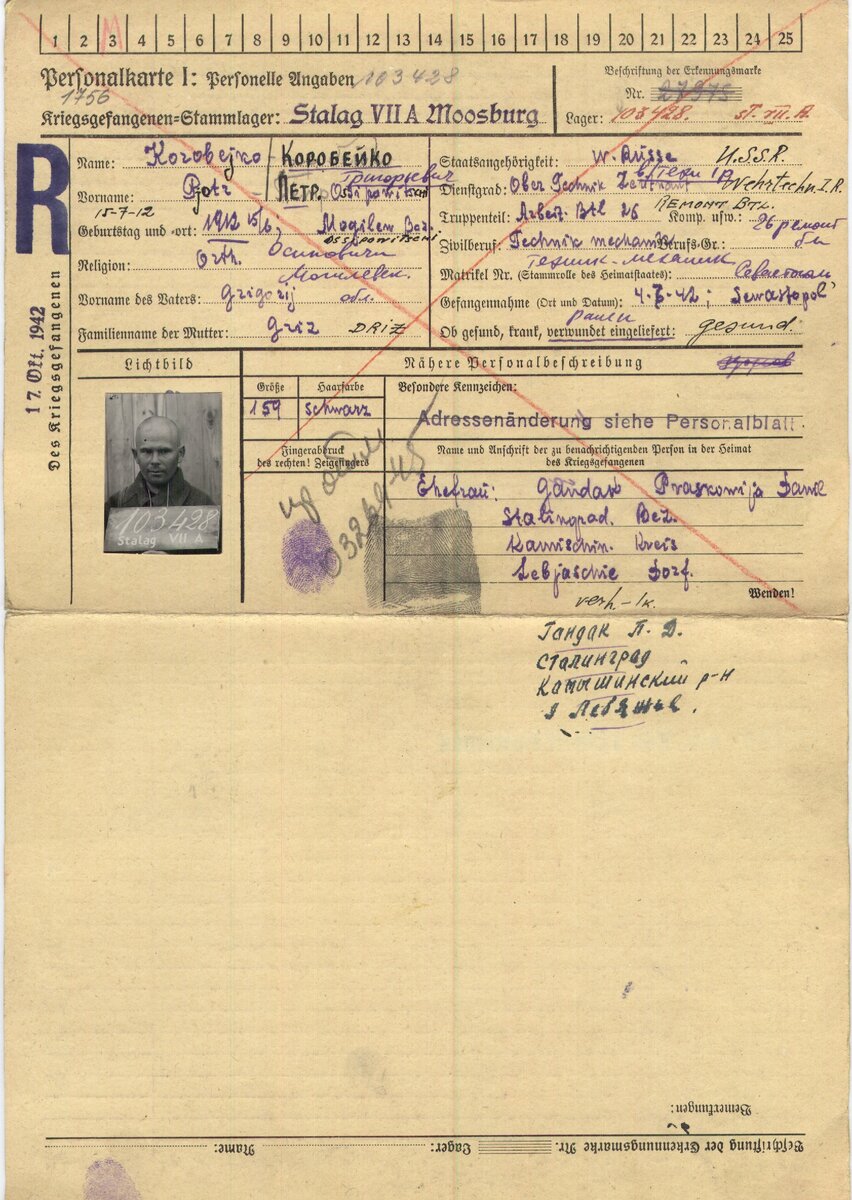 1 2 3 4 5 6 7 8 9 10 11 12 13 14 15 16 17 18 19 20 21 22 23 24 25
M
Personalkarte I: Personelle Angaben 103428
1756
Kriegsgefangenen-Stammlager: Stalag VII A Moosburg
Beschriftung der Erkennungsmarke
Nr.
Lager: 103428. ST. VII. A.
R
17. Okt. 1942
Des Kriegsgefangenen
Name: Korobejko - КОРОБЕЙКО
Григорьевич
Vorname: Pjotr - ПЕТР.
15-7-12
Geburtstag und -ort: 1912 15/6; Mogilew Bez.
Ossipowitschi
Religion: Orth. Осиповичи
Могилевск.
Vorname des Vaters: Grigorij обл.
Familienname der Mutter: Griz DRIZ
Staatsangehörigkeit: W. Russe U.S.S.R.
Dienstgrad: Ober Technik Wehrtechn. I.R.
REMONT BTL.
Truppenteil: Arbeit. Btl 26 Komp. usw.: 26 ремонт
бн
Zivilberuf: Technik mechanik Berufs-Gr.:
Техник-механик
Matrikel Nr. (Stammrolle des Heimatstaates): Севастополь
Gefangennahme (Ort und Datum): 4.7.42; Sewastopol
ранен
Ob gesund, krank, verwundet eingeliefert: gesund.
Lichtbild
Nähere Personalbeschreibung
Größe Haarfarbe Besondere Kennzeichen:
159 schwarz
Adressenänderung siehe Personalblatt.
Fingerabdruck
des rechten! Zeigefingers
Name und Anschrift der zu benachrichtigenden Person in der Heimat
des Kriegsgefangenen
Ehefrau: Gandak Praskowija Danil
Stalingrad. Bez.
Kamischin. Kreis
Lebjaschie Dorf.
103428
Stalag VII A
03269-45
Wenden!
verh - 1k.
Гандак П. Д.
Сталинград
Камышинский р-н
Bemerkungen:
Beschriftung der Erkennungsmarke Nr. Lager: Name: